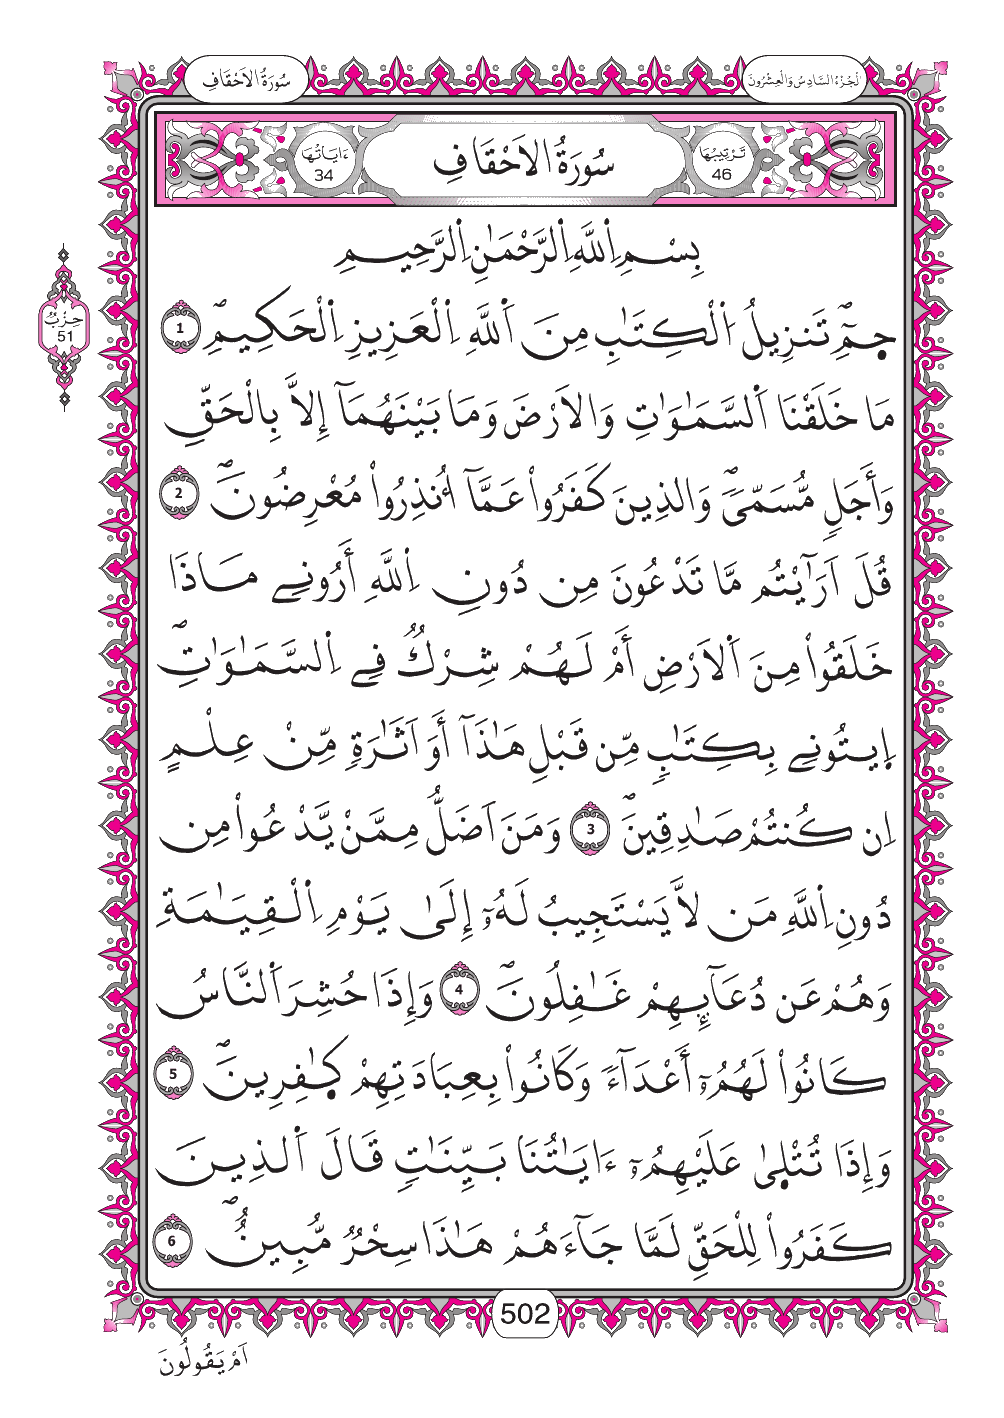 الجُزْءُ السَّادِسُ وَالْعِشْرُونَ
سُورَةُ الاَحْقَافِ
تَرْتِيبُهَا
46
سُورَةُ الاَحْقَافِ
ءَايَاتُهَا
34
بِسْمِ اِ۬للَّهِ اِ۬لرَّحْمَٰنِ اِ۬لرَّحِيمِ
حِزْبُ
51
جمِٓۖ تَنزِيلُ اُ۬لْكِتَٰبِ مِنَ اَ۬للَّهِ اِ۬لْعَزِيزِ اِ۬لْحَكِيمِۖ 1
مَا خَلَقْنَا اَ۬لسَّمَٰوَٰتِ وَالَارْضَ وَمَا بَيْنَهُمَآ إِلَّا بِالْحَقِّ
وَأَجَلٖ مُّسَمّيٗۖ وَالذِينَ كَفَرُواْ عَمَّآ أُنذِرُواْ مُعْرِضُونَۖ 2
قُلَ اَرَٰٓيْتُم مَّا تَدْعُونَ مِن دُونِ اِ۬للَّهِ أَرُونِے مَاذَا
خَلَقُواْ مِنَ اَ۬لَارْضِ أَمْ لَهُمْ شِرْكٞ فِے اِ۬لسَّمَٰوَٰتِۖ
اِ۪يتُونِے بِكِتَٰبٖ مِّن قَبْلِ هَٰذَآ أَوَ اَثَٰرَةٖ مِّنْ عِلْمٍ
اِن كُنتُمْ صَٰدِقِينَۖ 3 وَمَنَ اَضَلُّ مِمَّنْ يَّدْعُواْ مِن
دُونِ اِ۬للَّهِ مَن لَّا يَسْتَجِيبُ لَهُۥٓ إِلَىٰ يَوْمِ اِ۬لْقِيَٰمَةِ
وَهُمْ عَن دُعَآئِهِمْ غَٰفِلُونَۖ 4 وَإِذَا حُشِرَ اَ۬لنَّاسُ
كَانُواْ لَهُمُۥٓ أَعْدَآءٗ وَكَانُواْ بِعِبَادَتِهِمْ كٰ۪فِرِينَۖ 5
وَإِذَا تُتْل۪ىٰ عَلَيْهِمُۥٓ ءَايَٰتُنَا بَيِّنَٰتٖ قَالَ اَ۬لذِينَ
كَفَرُواْ لِلْحَقِّ لَمَّا جَآءَهُمْ هَٰذَا سِحْرٞ مُّبِينٌۖ 6
502
اَمْ يَقُولُونَ